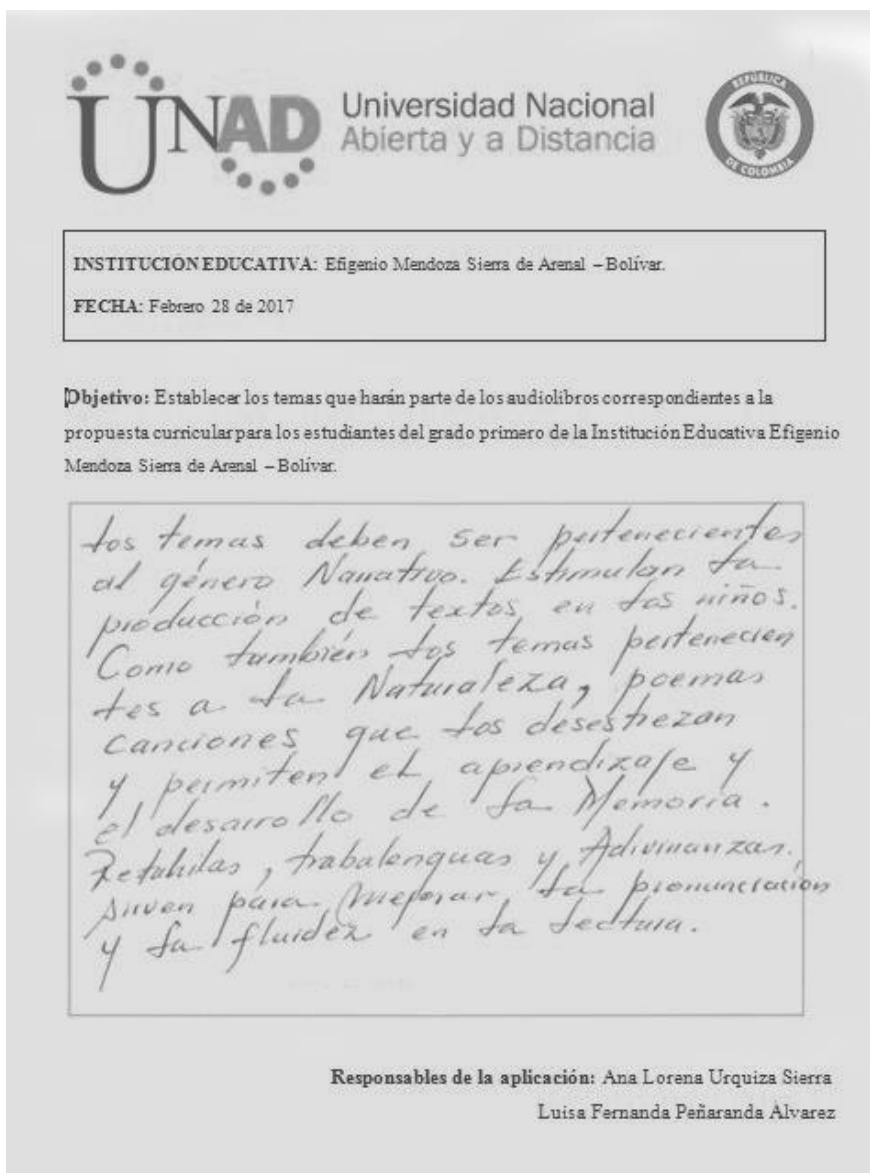 UNAD Universidad Nacional
Abierta y a Distancia
REPÚBLICA
DE COLOMBIA
INSTITUCIÓN EDUCATIVA: Efigenio Mendoza Sierra de Arenal – Bolívar.
FECHA: Febrero 28 de 2017
Objetivo: Establecer los temas que harán parte de los audiolibros correspondientes a la
propuesta curricular para los estudiantes del grado primero de la Institución Educativa Efigenio
Mendoza Sierra de Arenal – Bolívar.
Los temas deben ser pertenecientes
al género Narrativo. Estimulan la
producción de textos en los niños.
Como también los temas pertenecien
tes a la Naturaleza, poemas
canciones que los desestrezan
y permiten el aprendizaje y
el desarrollo de la Memoria.
Retahilas, trabalenguas y Adivinanzas.
sirven para mejorar la pronunciación
y la fluidez en la lectura.
Responsables de la aplicación: Ana Lorena Urquiza Sierra
Luisa Fernanda Peñaranda Álvarez